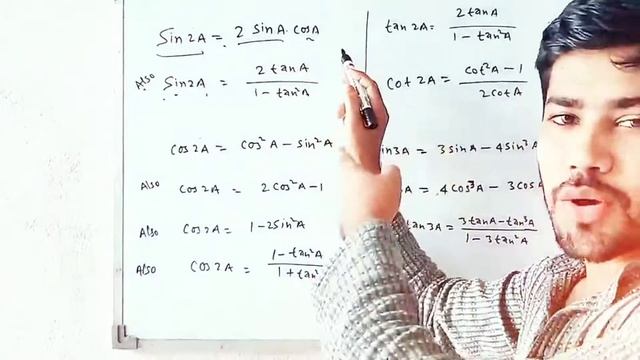 Sin2A = 2 sinA. cosA
Also Sin2A = 2 tanA / 1 - tan²A
cos2A = cos²A - sin²A
Also cos2A = 2cos²A - 1
Also cos2A = 1 - 2sin²A
Also cos2A = 1 - tan²A / 1 + tan²
tan 2A = 2 tanA / 1 - tan²A
Cot 2A = cot²A - 1 / 2cotA
in3A = 3 sinA - 4 sin³A
A = 4cos³A - 3 cosA
tan 3A = 3 tanA - tan³A / 1 - 3 tan²A